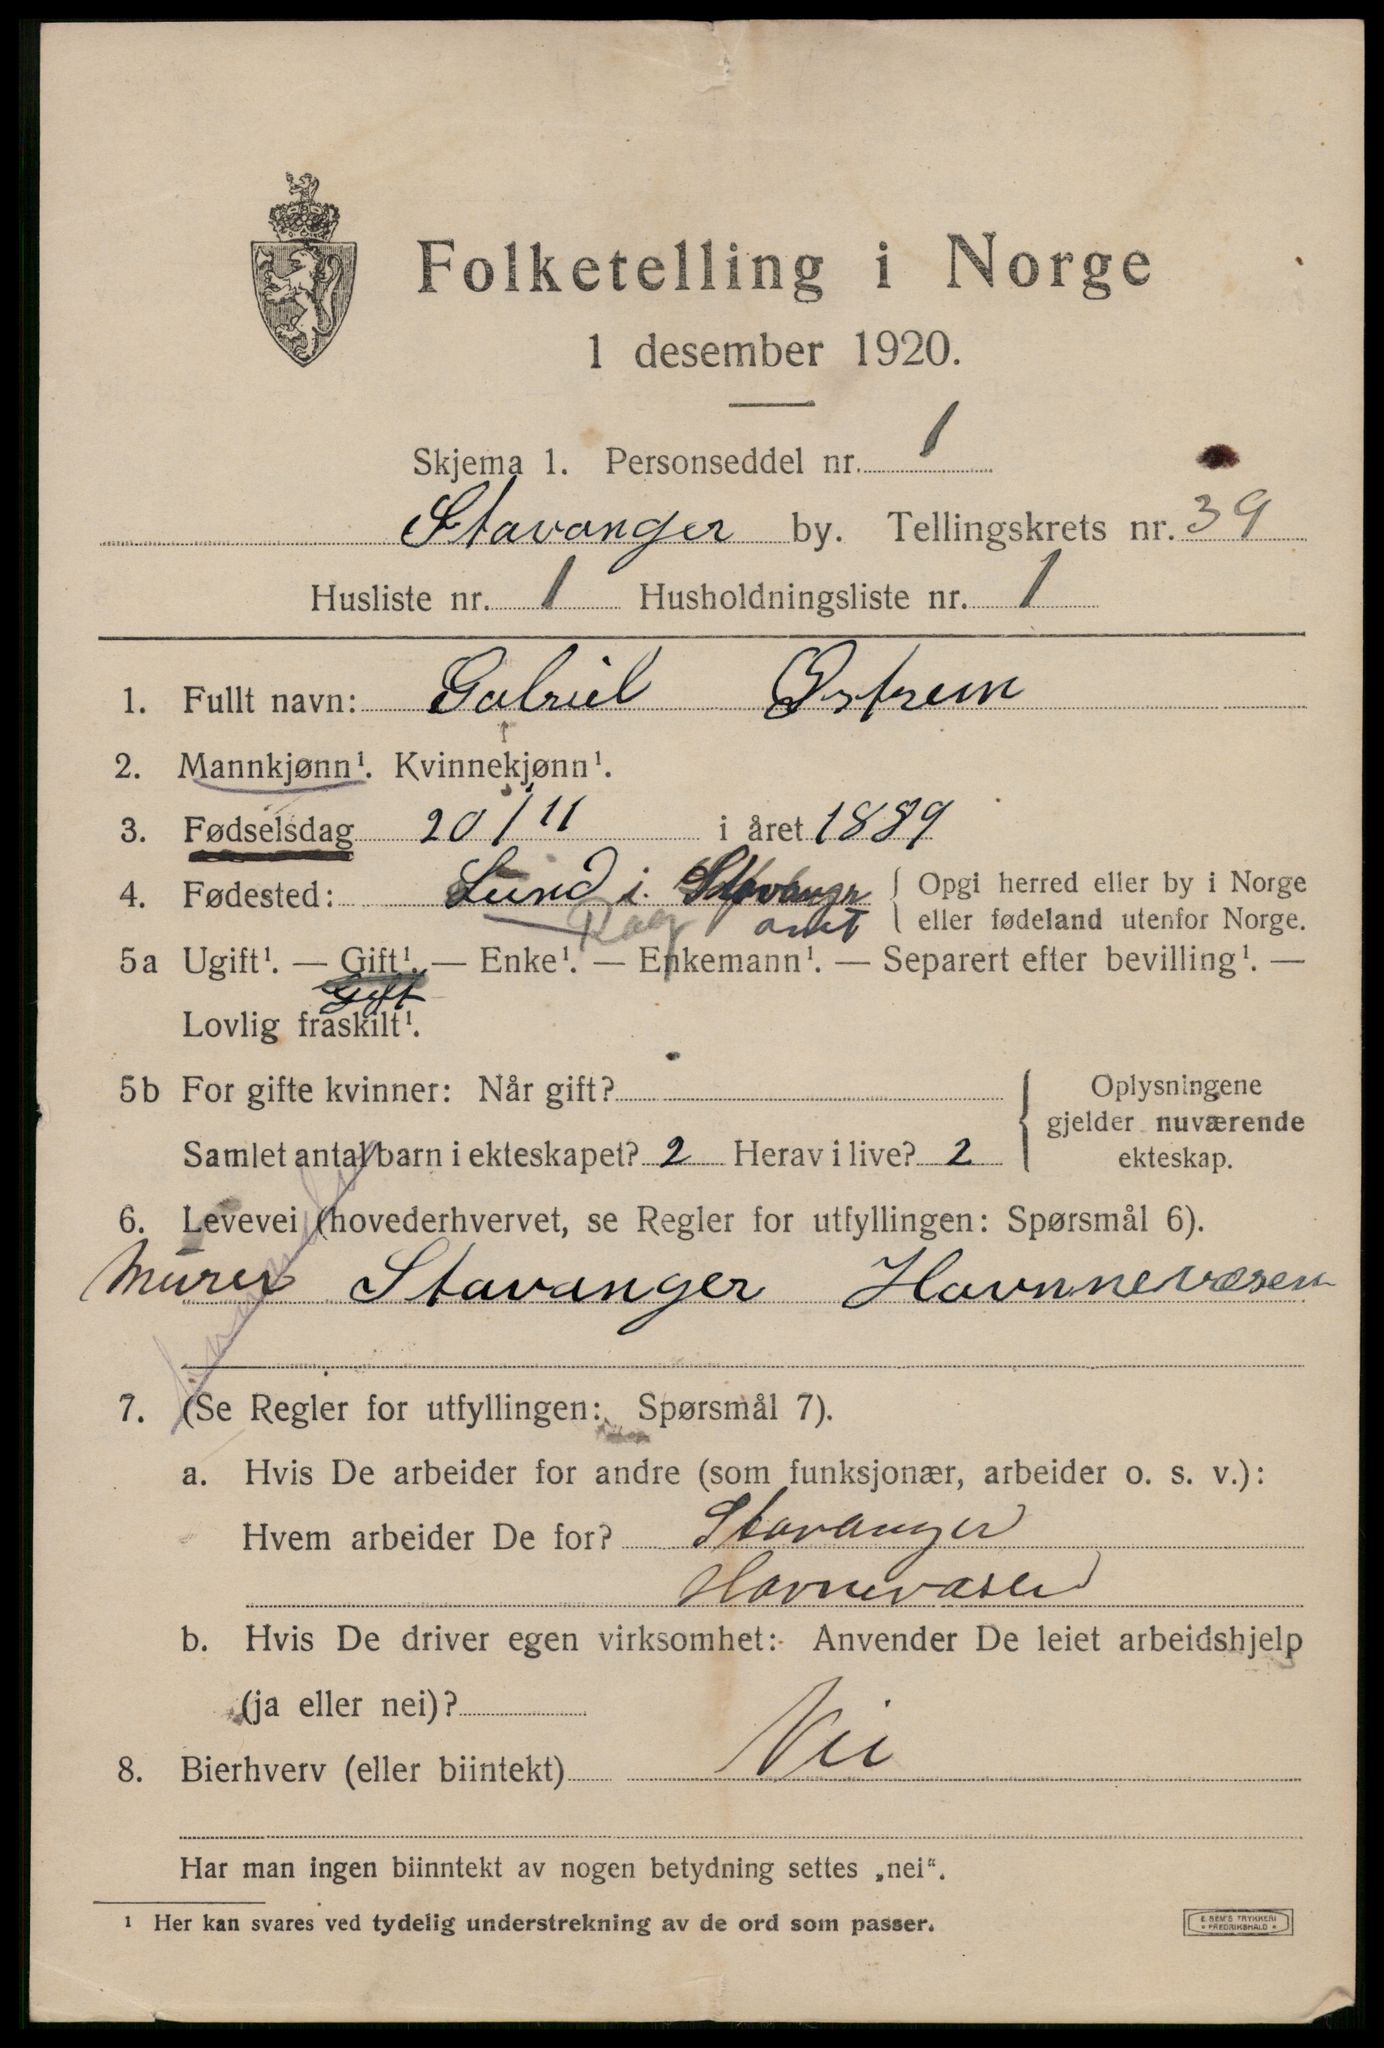 Folketelling i Norge
1 desember 1920.
Skjema 1. Personseddel nr. 1
Stavanger by. Tellingskrets nr. 39
Husliste nr. 1 Husholdningsliste nr. 1
1. Fullt navn: Gabriel Østrem
2. Mannkjønn¹. Kvinnekjønn¹.
3. Fødselsdag 20/11 i året 1889
4. Fødested: Lund i Stavanger { Opgi herred eller by i Norge
Rog amt eller fødeland utenfor Norge.
5a Ugift¹. — Gift¹. — Enke¹. — Enkemann¹. — Separert efter bevilling¹. —
Gift
Lovlig fraskilt¹.
5b For gifte kvinner: Når gift? { Oplysningene
gjelder nuværende
Samlet antal barn i ekteskapet? 2 Herav i live? 2 ekteskap.
6. Levevei (hovederhvervet, se Regler for utfyllingen: Spørsmål 6).
Murer Stavanger Havnnevæsen
7. (Se Regler for utfyllingen: Spørsmål 7).
a. Hvis De arbeider for andre (som funksjonær, arbeider o. s. v.):
Hvem arbeider De for? Stavanger
Havnevæsen
b. Hvis De driver egen virksomhet: Anvender De leiet arbeidshjelp
(ja eller nei)?
8. Bierhverv (eller biintekt) Nei
Har man ingen biinntekt av nogen betydning settes „nei“.
¹ Her kan svares ved tydelig understrekning av de ord som passer.
E. SEM'S TRYKKERI
* FREDRIKSHALD *